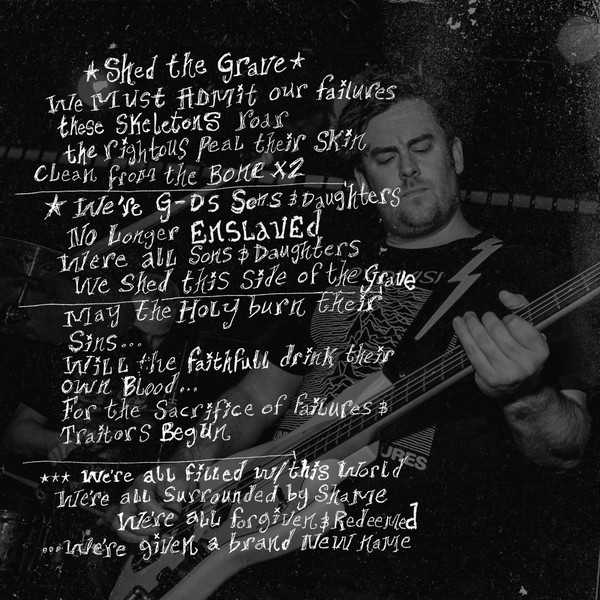 ★ Shed the Grave ★
We Must Admit our failures
these Skeletons roar
the rightous Peal their Skin
Clean from the Bone x2
★ We're G-Ds Sons & Daughters
No Longer Enslaved
We're all Sons & Daughters
We Shed this Side of the Grave
May the Holy burn their
Sins...
Will the faithfull drink their
own Blood...
For the Sacrifice of failures &
Traitors Begun
★★★ We're all filled w/ this World
We're all Surrounded by Shame
We're all forgiven & Redeemed
... We're given a brand New Name
URES